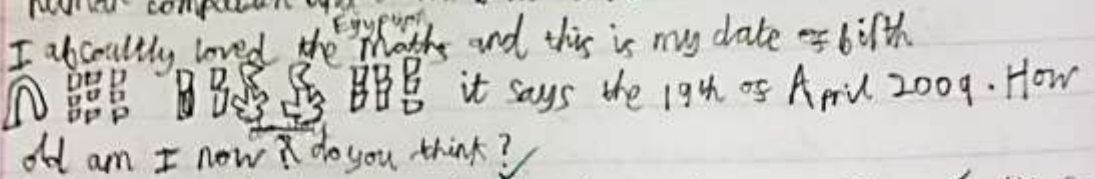 I abcoultly loved the Egyptian Maths and this is my date of bifth
it says the 19th of April 2009. How
old am I now? do you think?